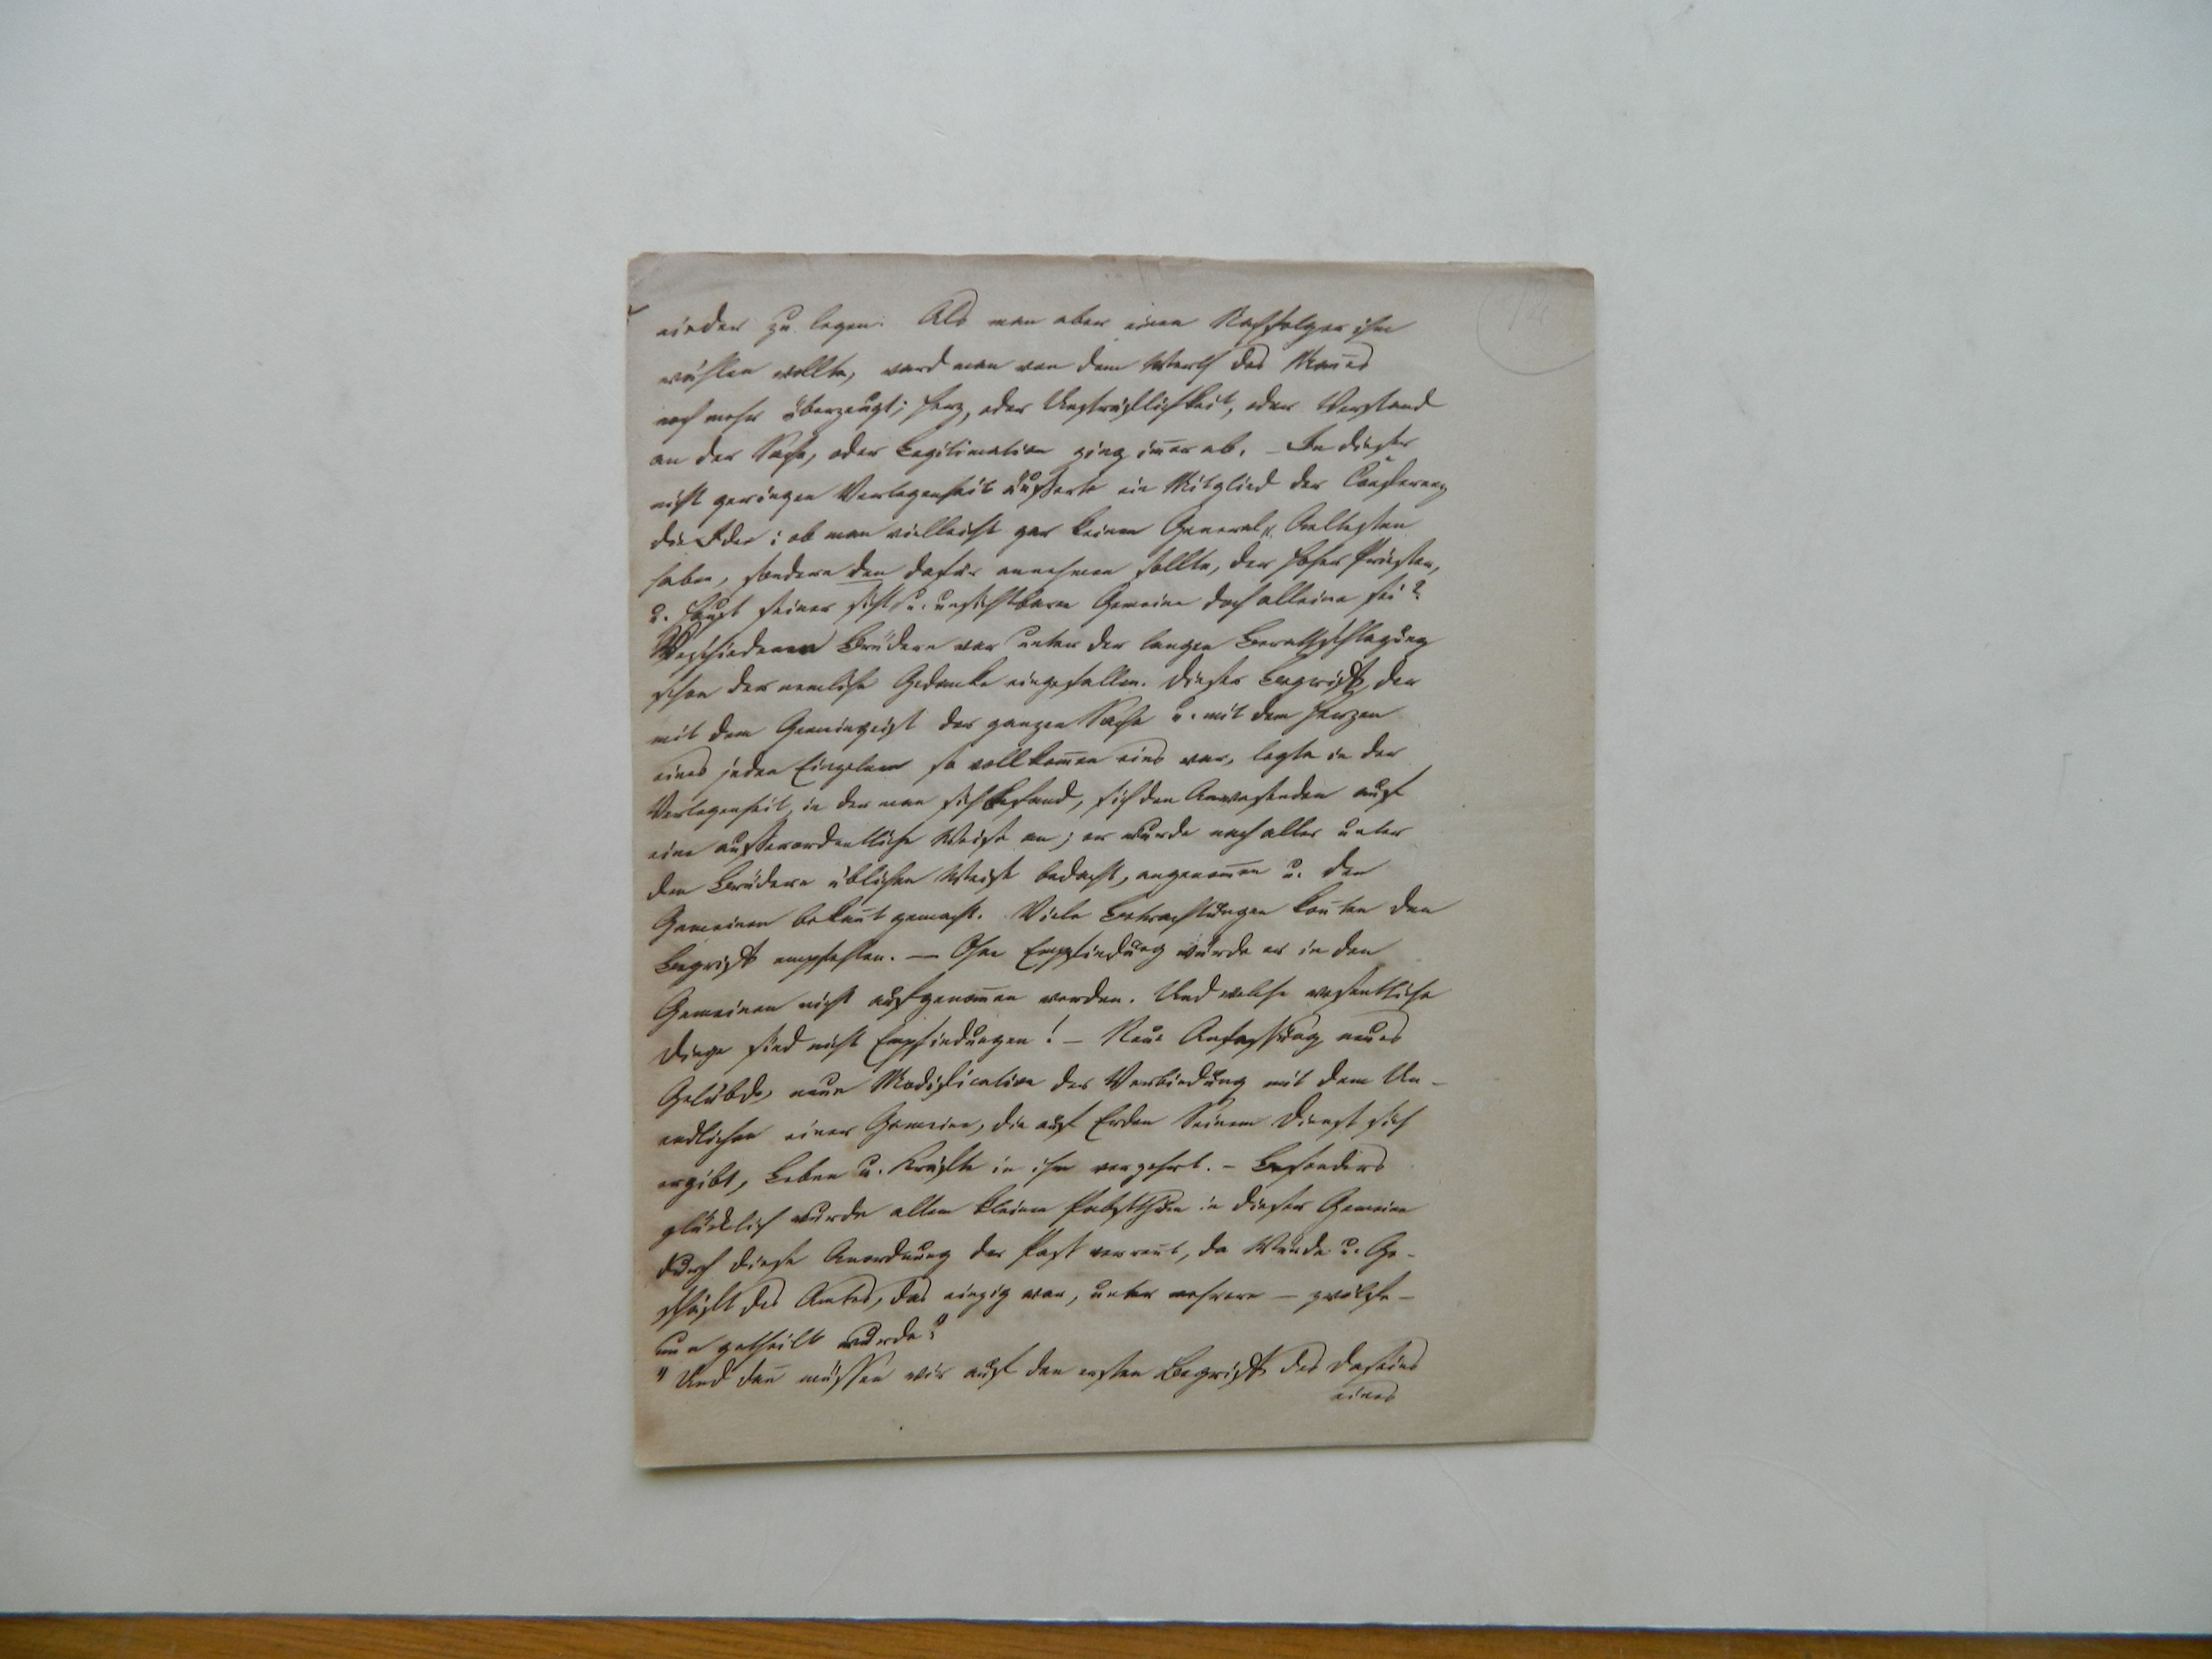 nieder zu legen. Als man aber einen Nachfolger ihm
wählen wollte, ward man von dem Werth des Mañes
noch mehr überzeugt; Herz, oder Unsträflichkeit, oder Verstand
an der Sache, oder Legitimation ging im̄er ab. – In dieser
nicht geringen Verlegenheit äußerte ein Mitglied der Conferenz
die Idee: ob man vielleicht gar keinen General Aeltesten
haben, sondern den dafür annehmen sollte, der Hoher Priester,
u. Haupt seiner sicht u. unsichtbaren Gemeine doch alleine sei?
Verschiedenen Brüdern war unter der langen Berathschlagung
schon der nemliche Gedanke eingefallen. Dieser Begriff, der
mit dem Gemeingeist der ganzen Sache u. mit dem Herzen
eines jeden Einzelnen so vollkom̄en eins war, legte in der
Verlegenheit, in der man sich befand, sich den Anwesenden auf
eine ausserordentliche Weise an; er wurde nach aller unter
den Brüdern üblichen Weise bedacht, angenom̄en u. den
Gemeinen bekañt gemacht. Viele Betrachtungen koñten den
Begriff empfehlen. — Ohne Empfindung würde er in den
Gemeinen nicht aufgenom̄en werden. Und welche wesentliche
Dinge sind nicht Empfindungen! – Neue Anfassung, neues
Gelübde, neue Modification der Verbindung mit dem Un-
endlichen einer Gemeine, die auf Erden Seinem Dienst sich
ergibt, Leben u. Kräfte in ihm verzehrt. – Besonders
glücklich wurde allem kleinen Pabstthum in dieser Gemeine
durch diese Anordnung der Paß verrañt, da Würde u. Ge-
schäft des Amtes, das einzig war, unter mehrere – zwölfe –
nun getheilt wurde."
" Und dañ müssen wir auf den ersten Begriff des Daseins
eines